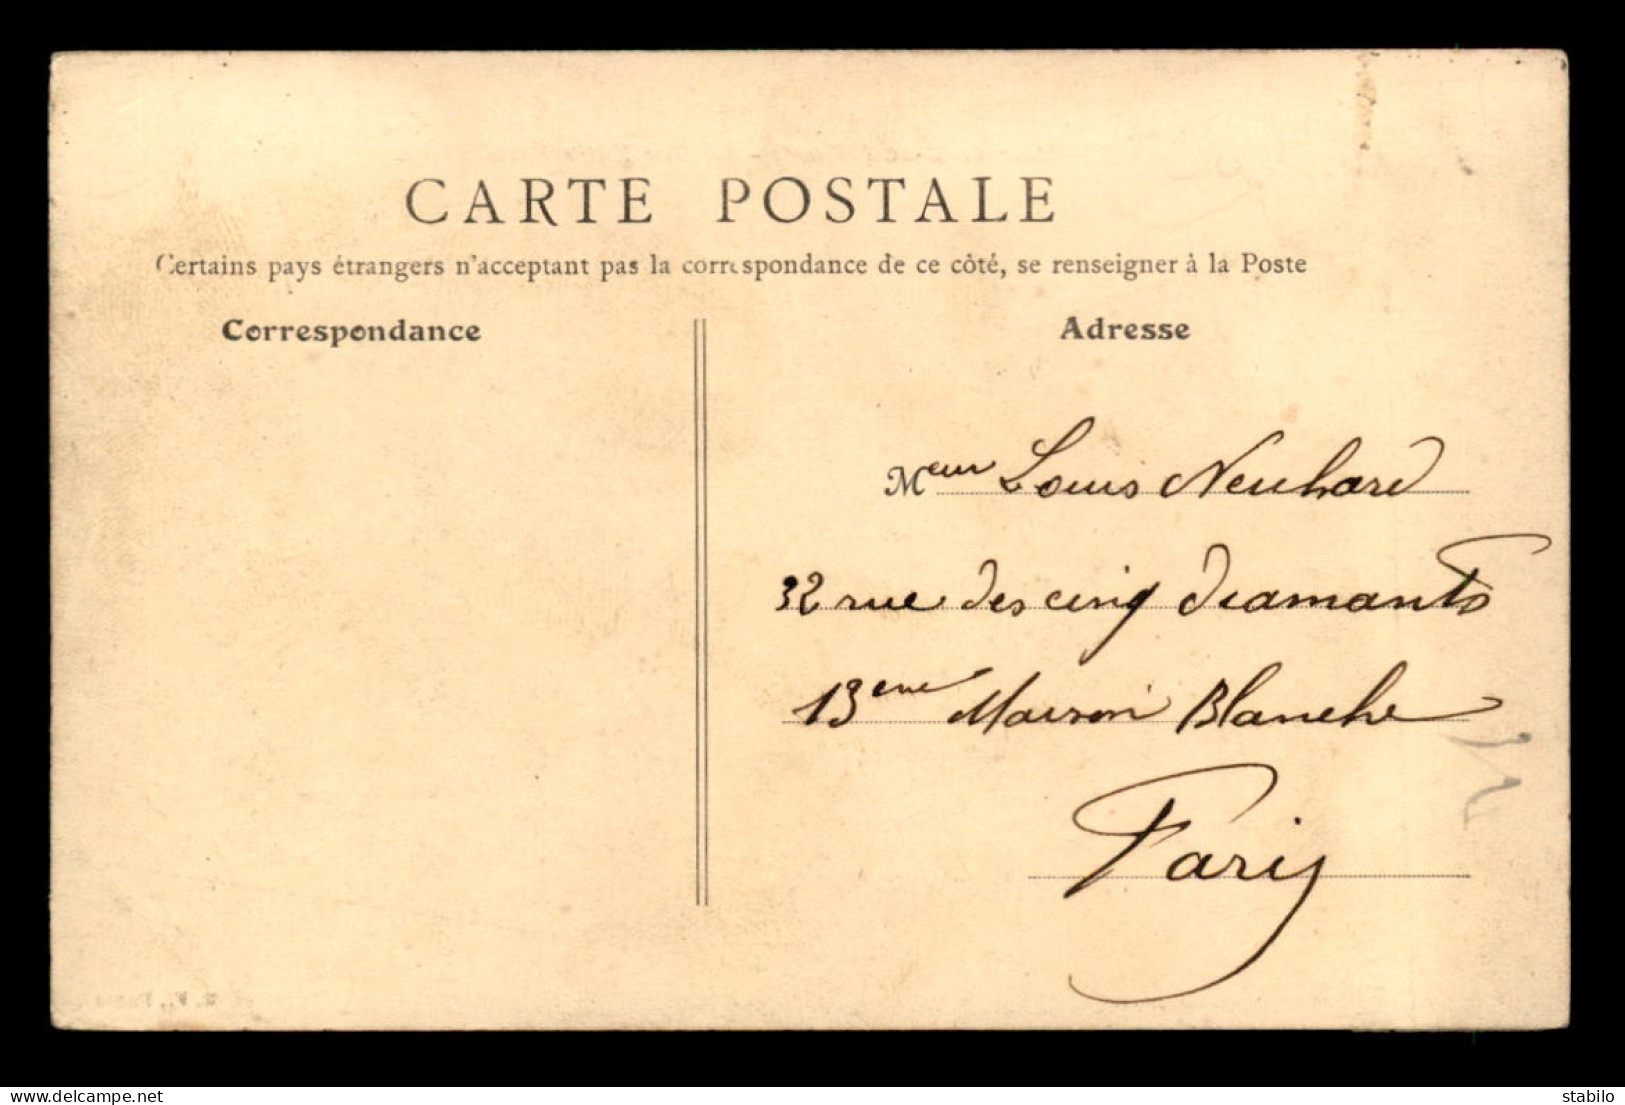 CARTE POSTALE
Certains pays étrangers n'acceptant pas la correspondance de ce côté, se renseigner à la Poste
Correspondance
Adresse
Meur Louis Neuhard
32 rue des cinq diamants
13eme Maison Blanche
Paris
www.delcampe.net
stabilo